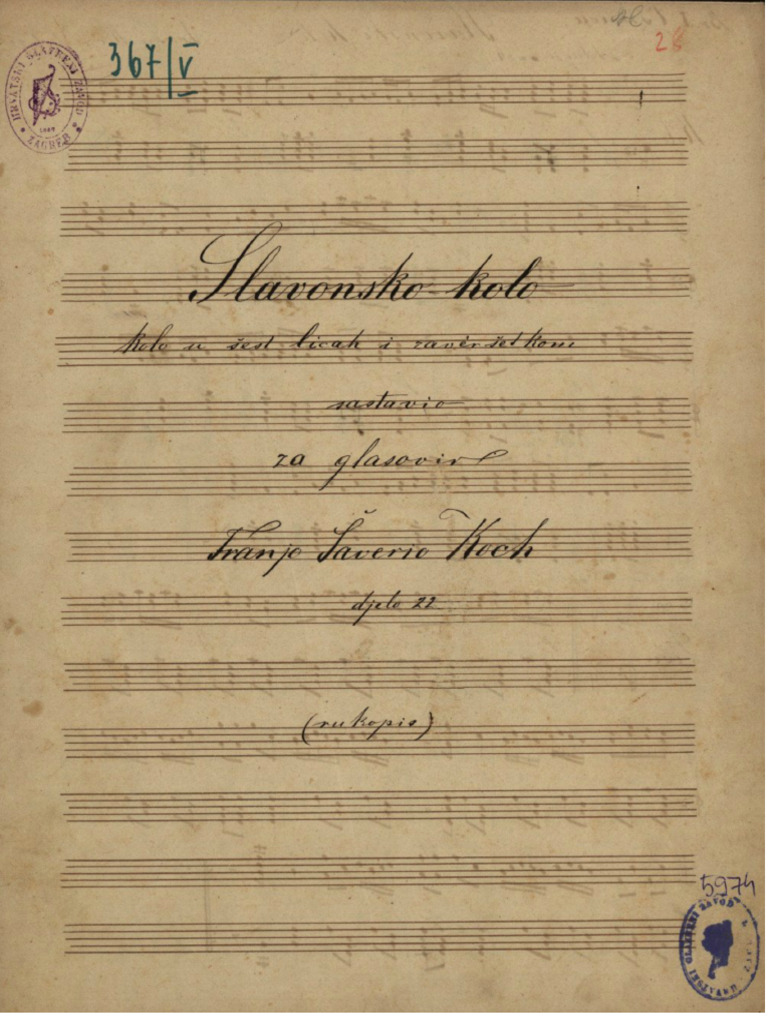 367/V
28
HRVATSKI GLAZBENI ZAVOD
ZAGREB
Slavonsko kolo
kolo u šest licah i zaveršetkom
sastavio
za glasovir
Franjo Šaverio Koch
djelo 22
(rukopis)
5974
HRVATSKI GLAZBENI ZAVOD